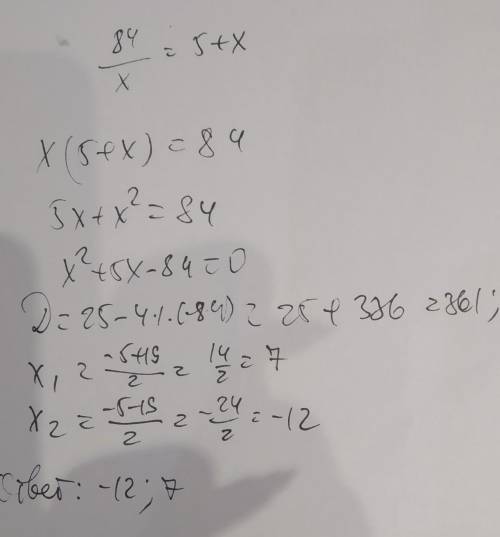 84/x = 5+x
x(5+x) = 84
5x+x² = 84
x²+5x-84=0
D=25-4·1·(-84) = 25+336=361;
x₁ = (-5+19)/2 = 14/2 = 7
x₂ = (-5-19)/2 = -24/2 = -12
Ответ: -12; 7